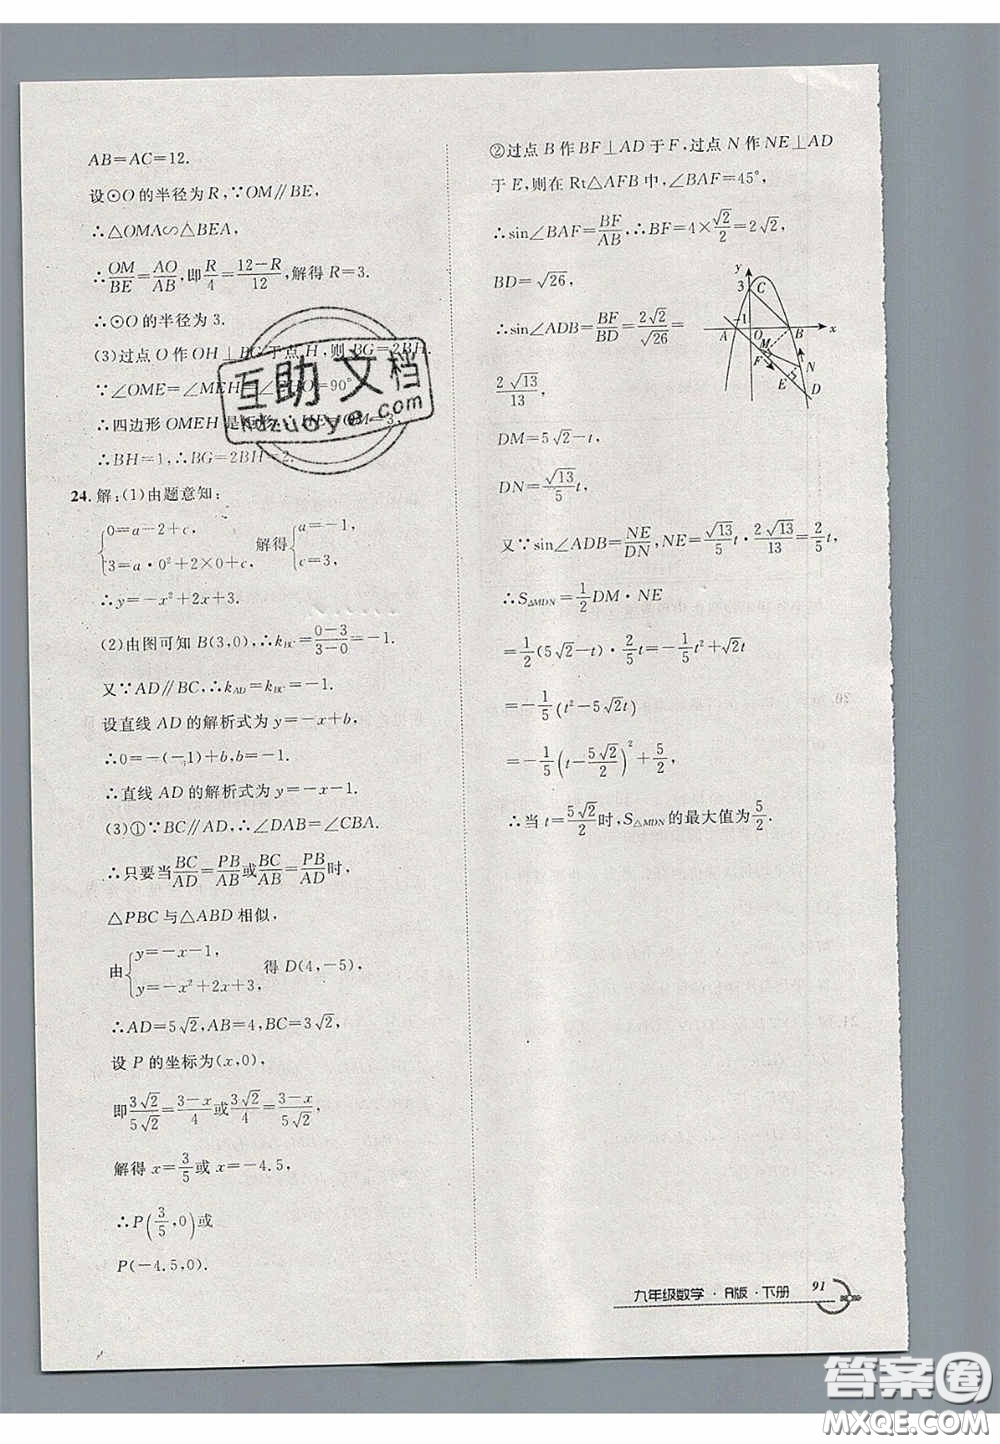 AB=AC=12.
设⊙O的半径为R,∵OM∥BE,
∴△OMA∽△BEA,
∴OM/BE=AO/AB,即R/4=(12-R)/12,解得R=3.
∴⊙O的半径为3.
(3)过点O作OH⊥BG于点H,则BG=2BH.
∵∠OME=∠MEH=∠EHO=90°
∴四边形OMEH是矩形,∴HE=OM=3,
∴BH=1,∴BG=2BH=2.
24.解:(1)由题意知:
{0=a-2+c,
3=a·0²+2×0+c,
解得{a=-1,
c=3,
∴y=-x²+2x+3.
(2)由图可知B(3,0),∴k_BC=(0-3)/(3-0)=-1.
又∵AD∥BC,∴k_AD=k_BC=-1.
设直线AD的解析式为y=-x+b,
∴0=-(-1)+b,b=-1.
∴直线AD的解析式为y=-x-1.
(3)①∵BC∥AD,∴∠DAB=∠CBA.
∴只要当BC/AD=PB/AB或BC/AB=PB/AD时,
△PBC与△ABD相似,
由{y=-x-1,
y=-x²+2x+3,
得D(4,-5),
∴AD=5√2,AB=4,BC=3√2,
设P的坐标为(x,0),
即3√2/5√2=(3-x)/4或3√2/4=(3-x)/5√2,
解得x=3/5或x=-4.5,
∴P(3/5,0)或
P(-4.5,0).
②过点B作BF⊥AD于F,过点N作NE⊥AD
于E,则在Rt△AFB中,∠BAF=45°,
∴sin∠BAF=BF/AB,∴BF=4×√2/2=2√2,
BD=√26,
∴sin∠ADB=BF/BD=2√2/√26=
2√13/13,
DM=5√2-t,
DN=√13/5 t,
又∵sin∠ADB=NE/DN,NE=√13/5 t·2√13/13=2/5 t,
∴S△MDN=1/2 DM·NE
=1/2(5√2-t)·2/5 t=-1/5 t²+√2 t
=-1/5(t²-5√2t)
=-1/5(t-5√2/2)²+5/2,
∴当t=5√2/2时,S△MDN的最大值为5/2.
y
3
C
-1
A
O
B
x
M
F
N
E
D
互助文档
hdzuoye.com
九年级数学·R版·下册
91
答案圈
MXQE.COM